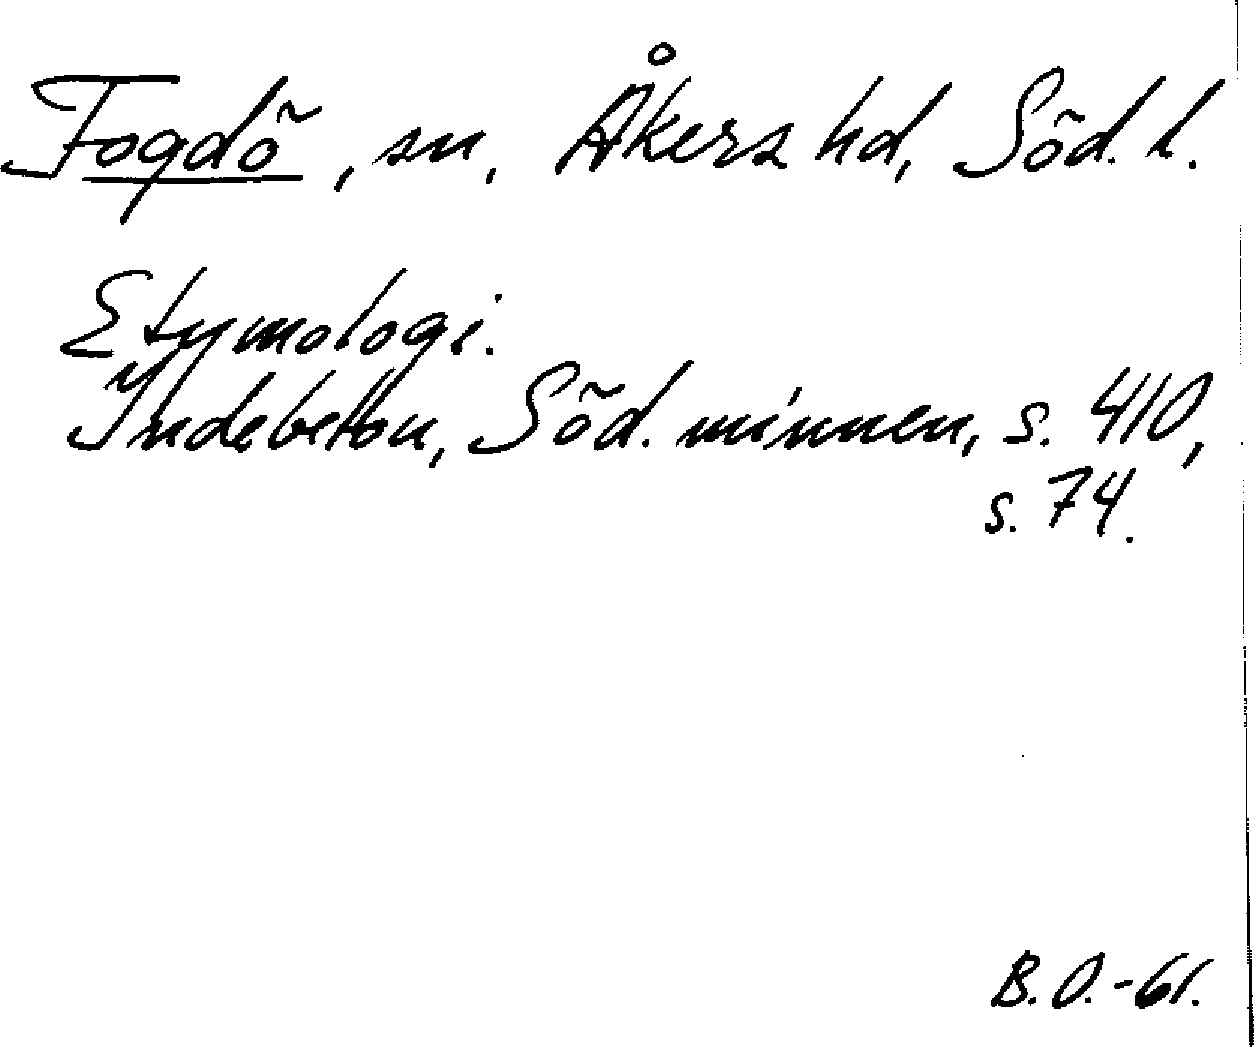 Fogdö, sn, Åkers hd, Söd. l.
Etymologi.
Indebetou, Söd. minnen, s. 410,
s. 74.
B. O. -61.